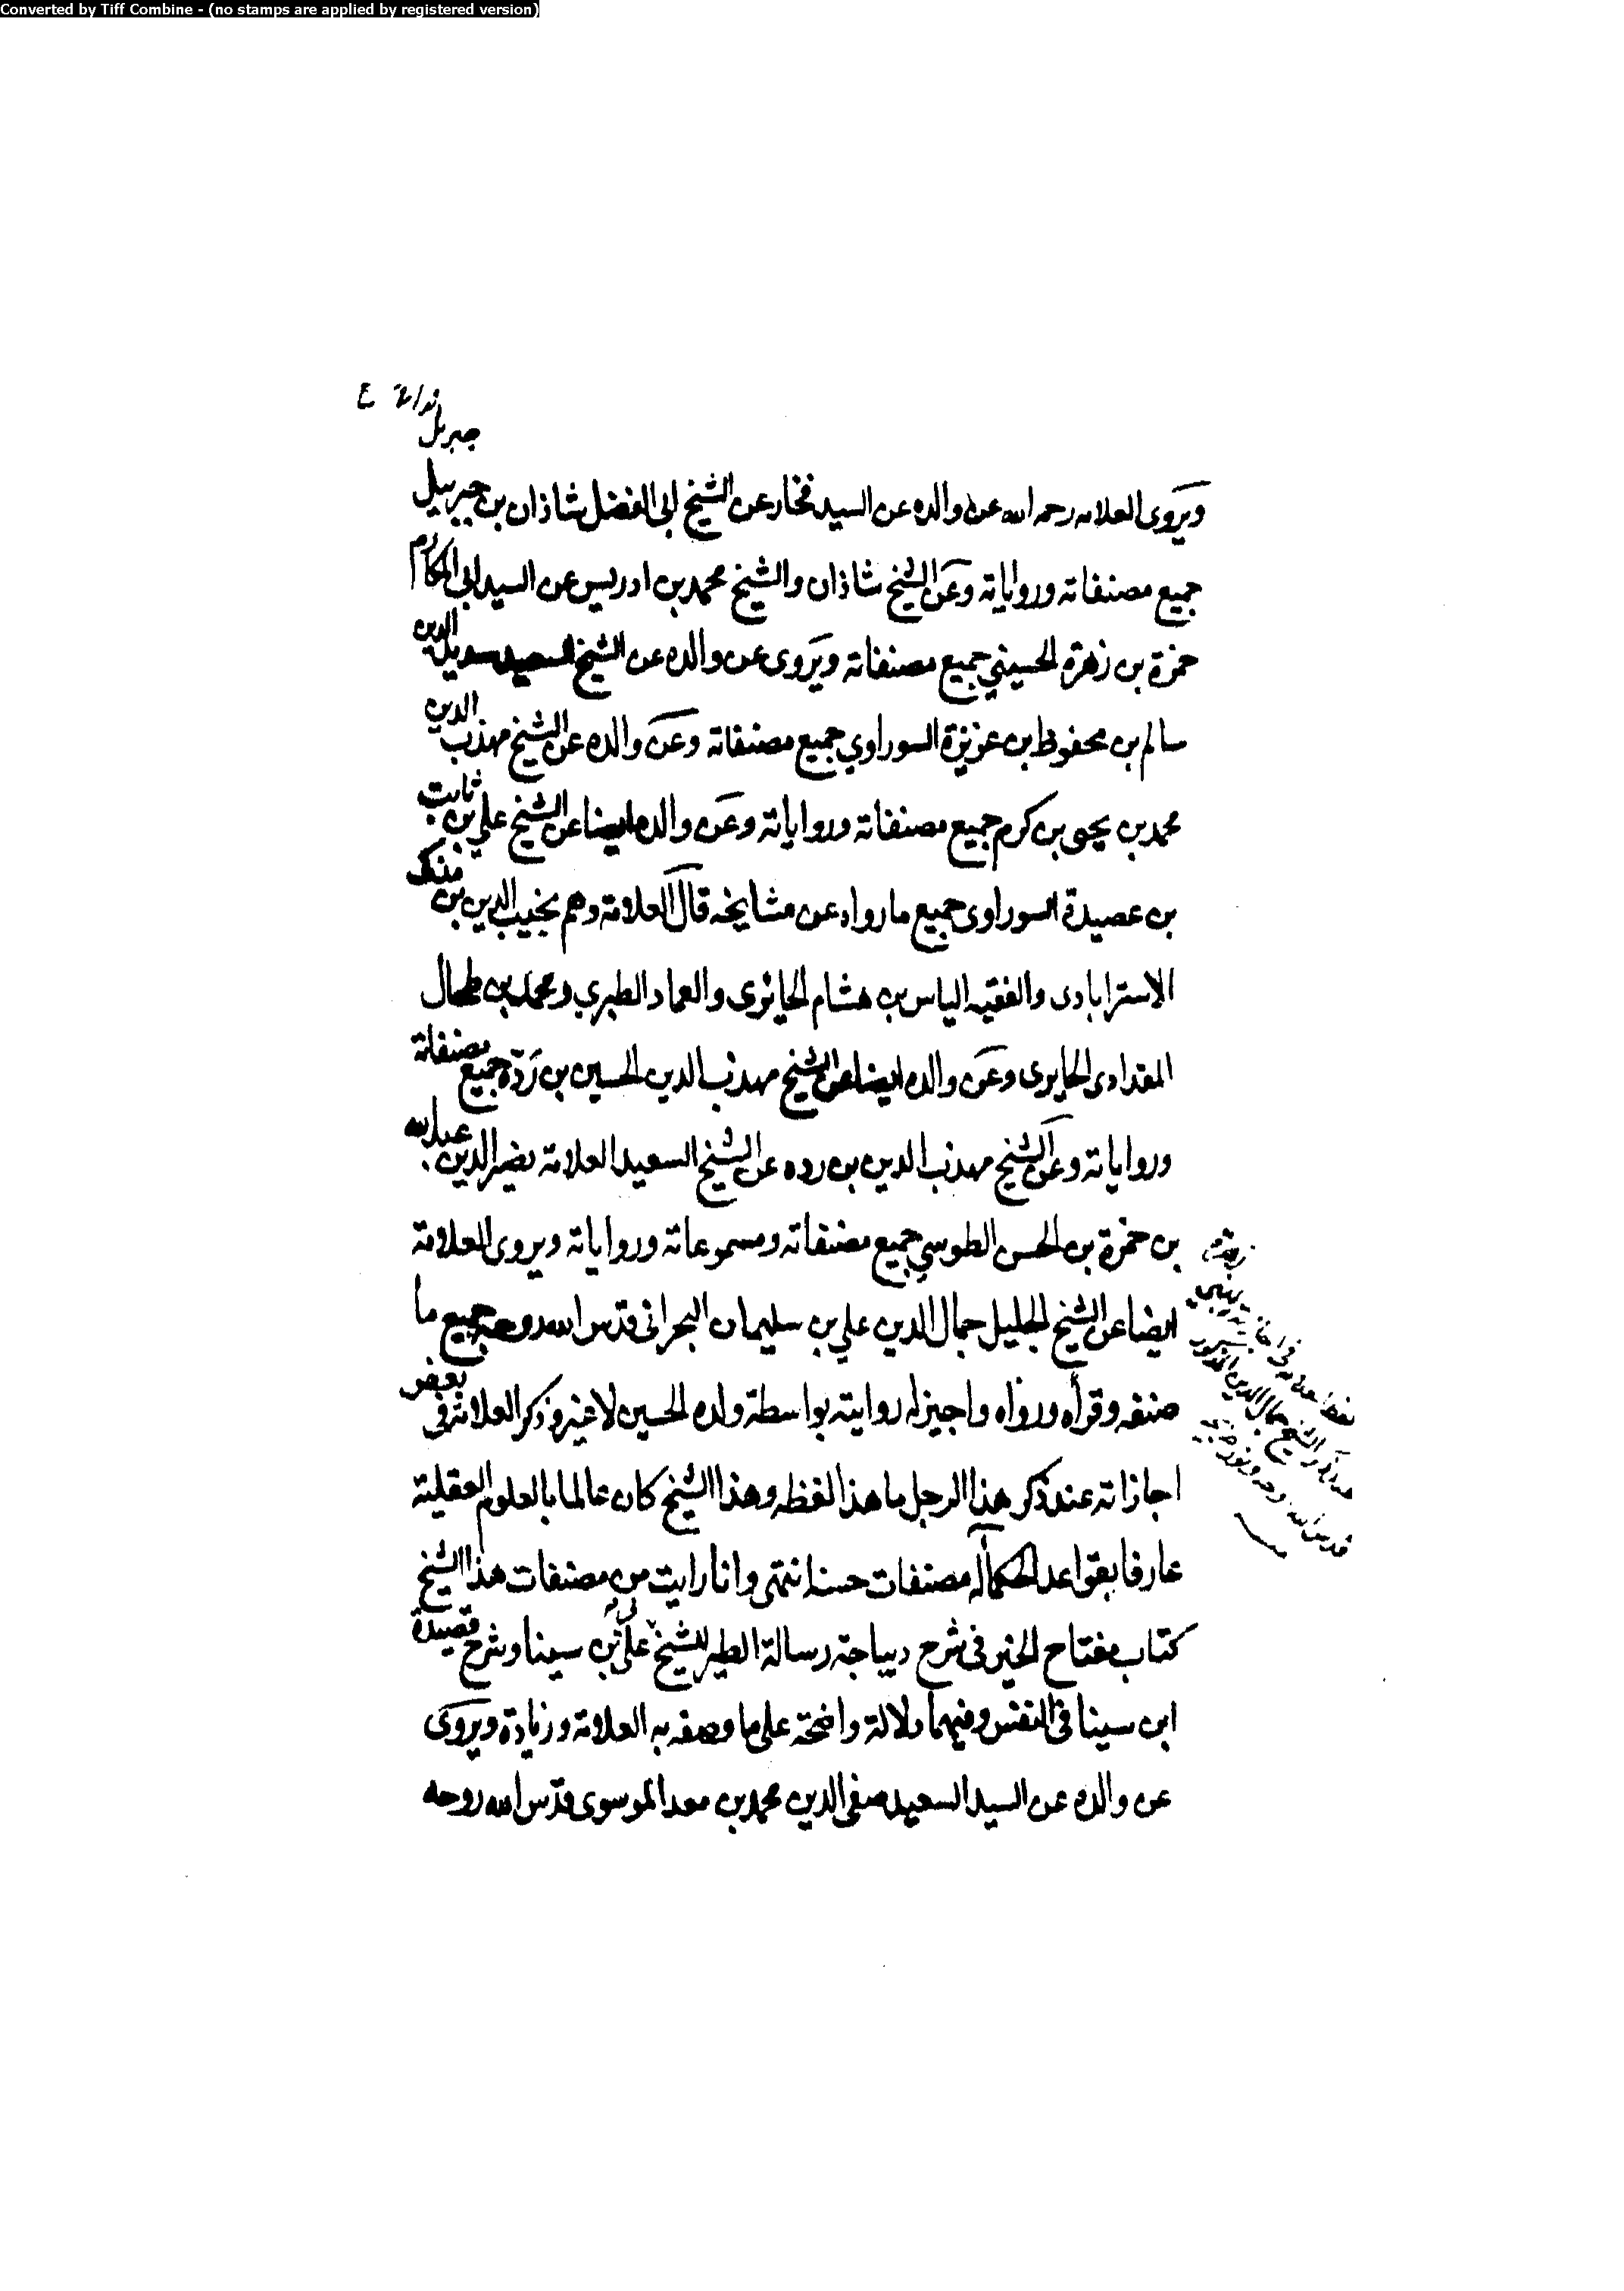 Converted by Tiff Combine - (no stamps are applied by registered version)
جبريل
ويروى العلامه رحمه الله عن والده عن السيد فخار عن الشيخ ابى الفضل شاذان بن جبرييل
جميع مصنفاته ورواياته وعن الشيخ شاذان والشيخ محمد بن ادريس عن السيد ابى المكارم
حمزة بن زهرة الحسيني جميع مصنفاته ويروى عن والده عن الشيخ السعيد سديد الدين
سالم بن محفوظ بن عزيزة السوراوي جميع مصنفاته وعن والده عن الشيخ مهذب الدين
محمد بن يحيى بن كرم جميع مصنفاته ورواياته وعن والده ايضا عن الشيخ علي بن ثابت
بن عصيدة السوراوى جميع ما رواه عن مشايخه قال العلامة وهم نجيب الدين بن مذكى
الاسترابادى والفقيه الياس بن هشام الحائرى والعماد الطبري ومحمد بن طحال
المقدادى الحايرى وعن والده ايضا عن الشيخ مهذب الدين الحسين بن ردة جميع مصنفاته
ورواياته وعن الشيخ مهذب الدين بن رده عن الشيخ السعيد العلامة نصير الدين عبد الله
بن حمزة بن الحسن الطوسي جميع مصنفاته ومسموعاته ورواياته ويروى العلامة
ايضا عن الشيخ الجليل جمال الدين علي بن سليمان البحرانى قدس الله روحه جميع ما
صنفه وقرأه ورواه واجيز له روايته بواسطة ولده الحسين لا غير وذكر العلامة فى بعض
اجازاته عند ذكر هذا الرجل ما هذا لفظه وهذا الشيخ كان عالما بالعلوم العقلية
عارفا بقواعد الحكماء له مصنفات حسنة انتهى وانا رايت من مصنفات هذا الشيخ
كتاب مفتاح الخير فى شرح ديباجة رسالة الطير للشيخ على بن سينا وشرح قصيدة
ابن سينا فى النفس وفيهما دلالة واضحة على ما وصفه به العلامة وزيادة ويروى
عن والده عن السيد السعيد صفى الدين محمد بن معد الموسوى قدس الله روحه